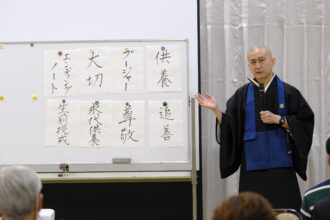 供養
プージャー
大切
エンディングノート
追善
尊敬
永代供養
生前授戒